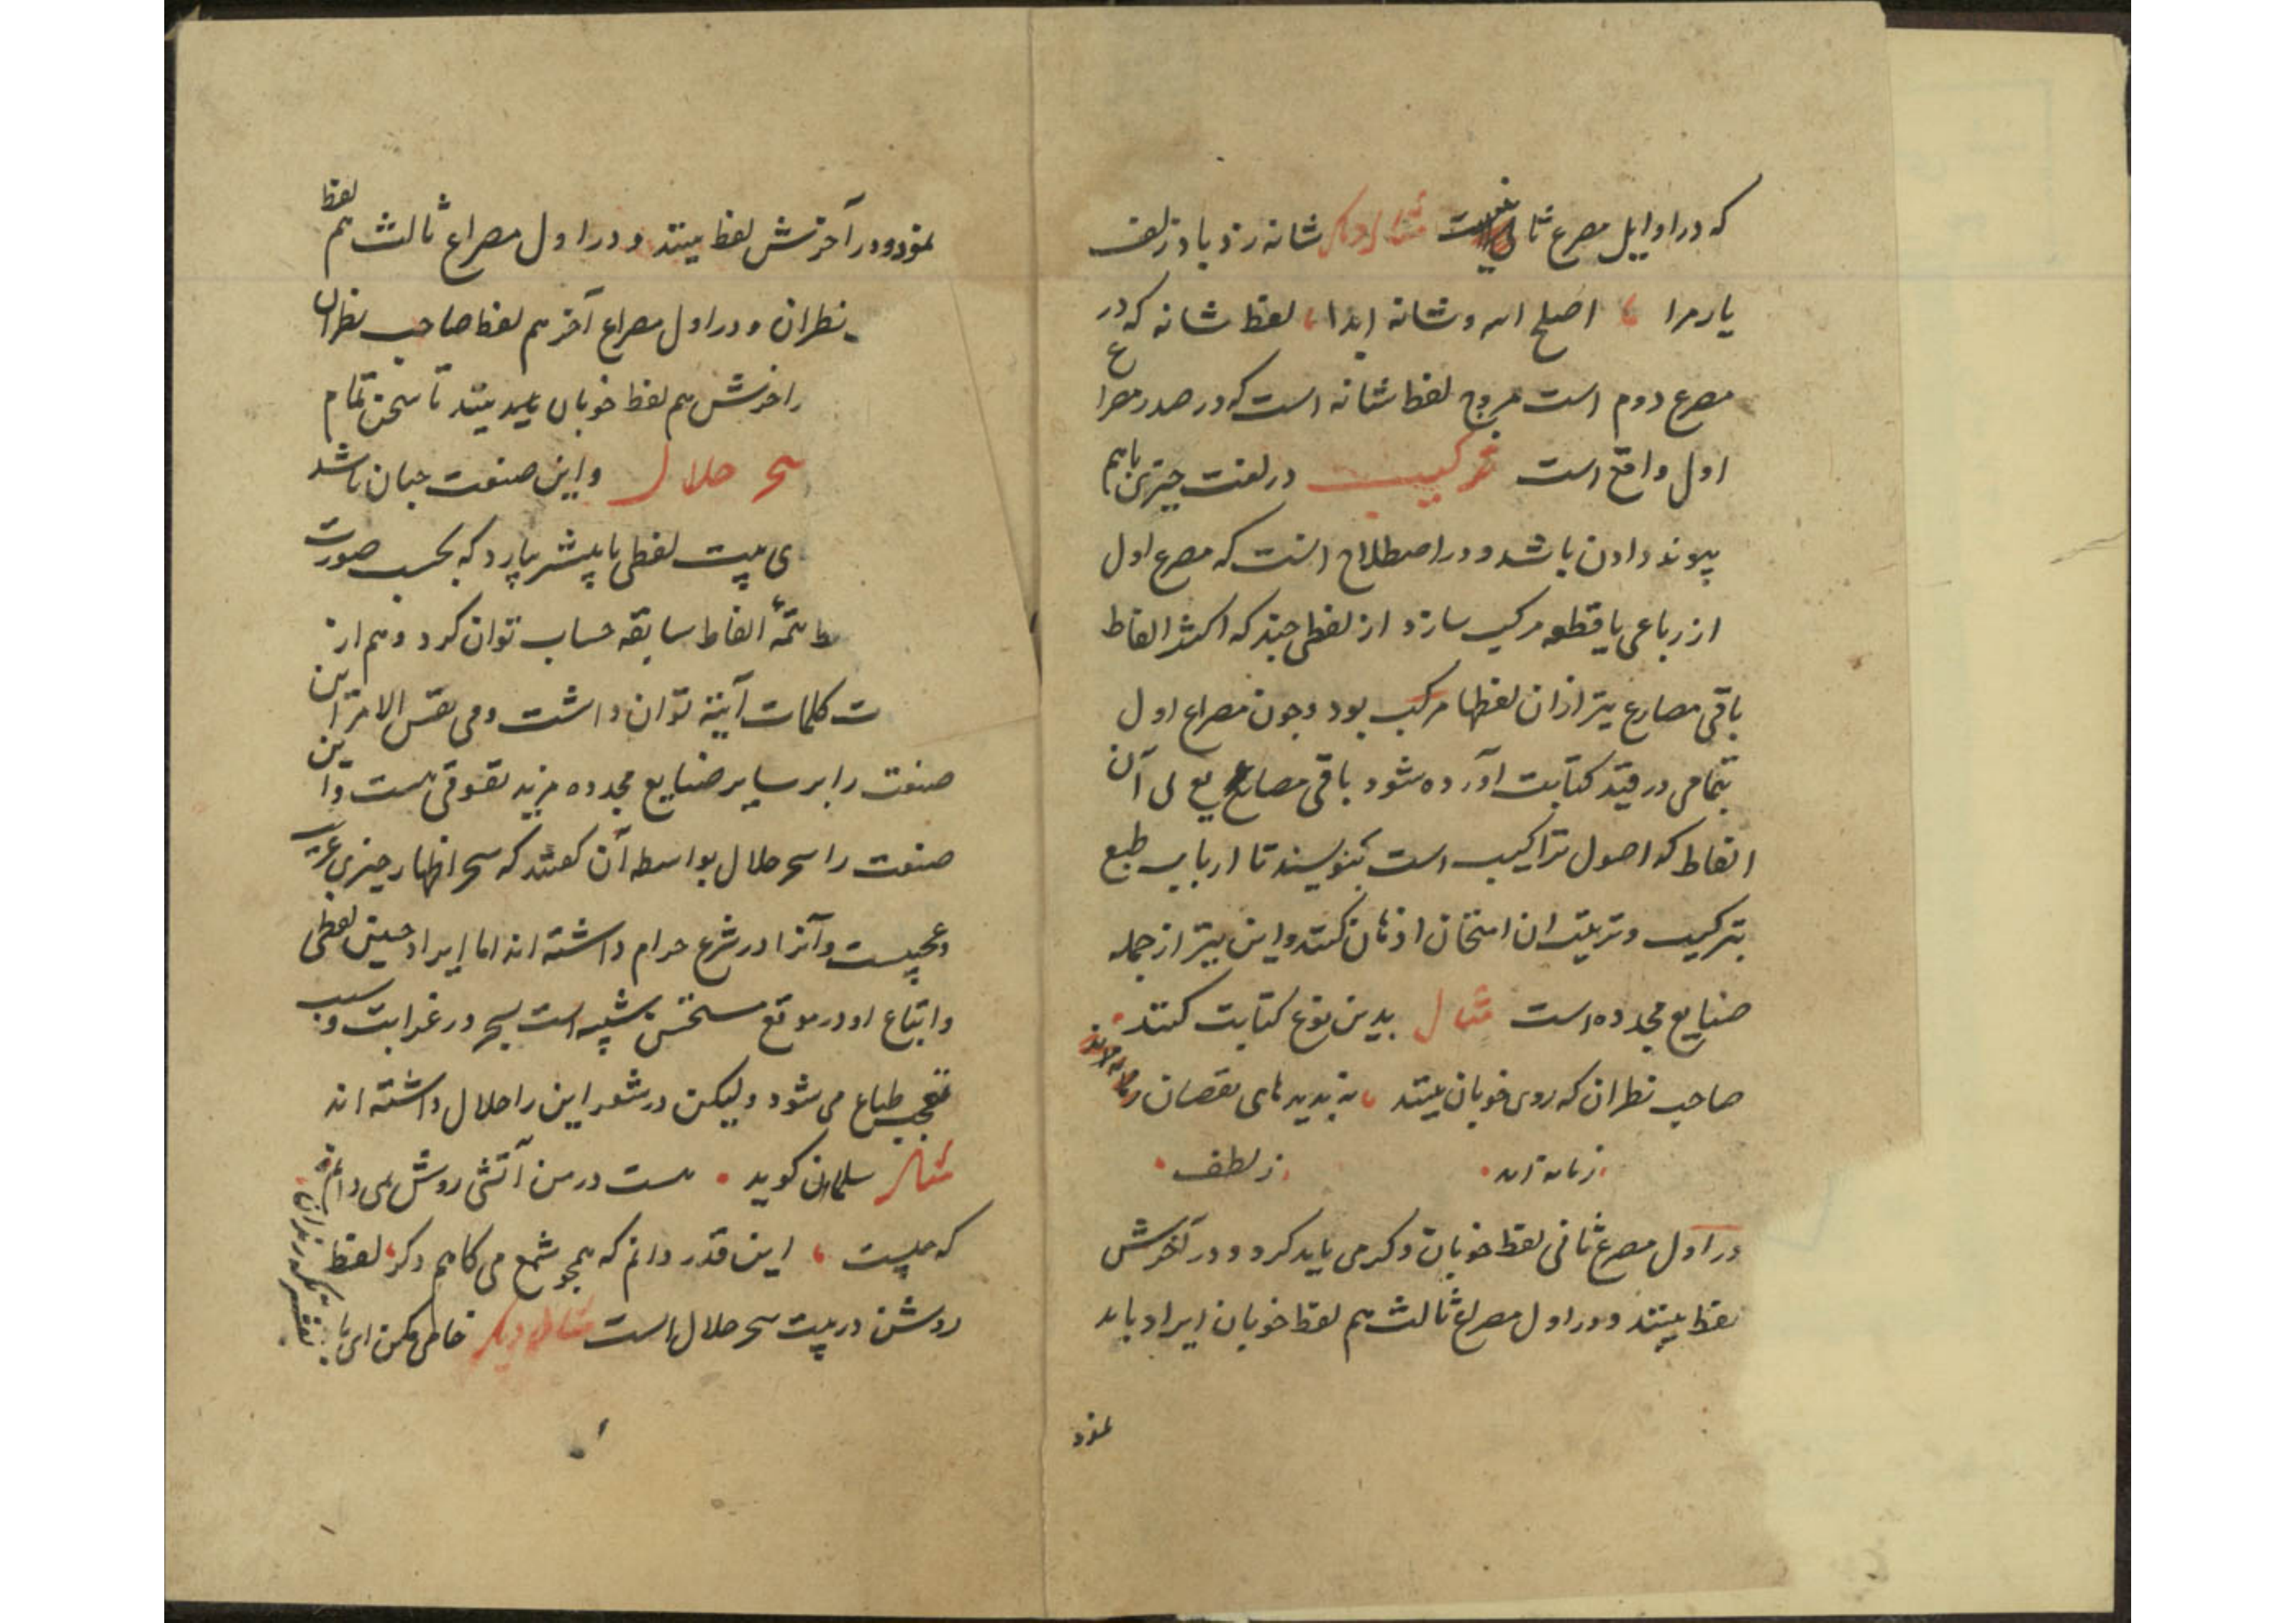 که در اوایل مصرع ثانیست مثال دیگر شانه زد باد زلف
یار مرا اصلح الله شانه ابدا لفظ شانه که در
مصرع دوم است مروج لفظ شانه است که در صدر مصراع
اول واقع است ترکیب در لغت چیزی باهم
پیوند دادن باشد و در اصطلاح آنست که مصرع اول
از رباعی یا قطعه مرکب سازد از لفظی چند که اکثر الفاظ
باقی مصارع نیز از آن لفظها مرکب بود و چون مصراع اول
بتمامی در قید کتابت آورده شود باقی مصاریع بی آن
الفاظ که اصول تراکیب است بنویسند تا ارباب طبع
بترکیب و ترتیب آن امتحان اذهان کنند و این نیز از جمله
صنایع مجدده است مثال بدین نوع کتابت کنند
صاحب نظران که روی خوبان بینند نه بدیدهای نقصان
ز لطف
در اول مصرع ثانی لفظ خوبان ذکر می باید کرد و در آخرش
لفظ بینند و در اول مصراع ثالث هم لفظ خوبان ایراد باید
نمود
نمود و در آخرش لفظ بینند و در اول مصراع ثالث هم لفظ
نظران و در اول مصراع آخر هم لفظ صاحب نظران
را خرش هم لفظ خوبان بینند تا سخن تمام
سحر حلال و این صنعت چنان باشد
ی بیت لفظی یا بیشتر بیارد که بحسب صورت
تتمهٔ الفاظ سابقه حساب توان کرد و هم از
ت کلمات آتیه توان داشت و فی نفس الامر این
صنعت را بر سایر صنایع مجدده مزید تفوقی هست و این
صنعت را سحر حلال بواسطه آن گفتند که سحر اظهار چیزی غریب
و عجیبست و آنرا در شرع حرام داشته اند اما ایراد چنین لفظی
و اتباع او در موقع مستحسن شبیه است بسحر در غرابت و سبب
تعجب طباع می شود ولیکن در شعر این را حلال داشته اند
مثال سلمان گوید هست در من آتشی روشن نمی دانم
که چیست این قدر دانم که همچو شمع می کاهم دگر لفظ
روشن در بیت سحر حلال است مثال دیگر خامی مکن ای